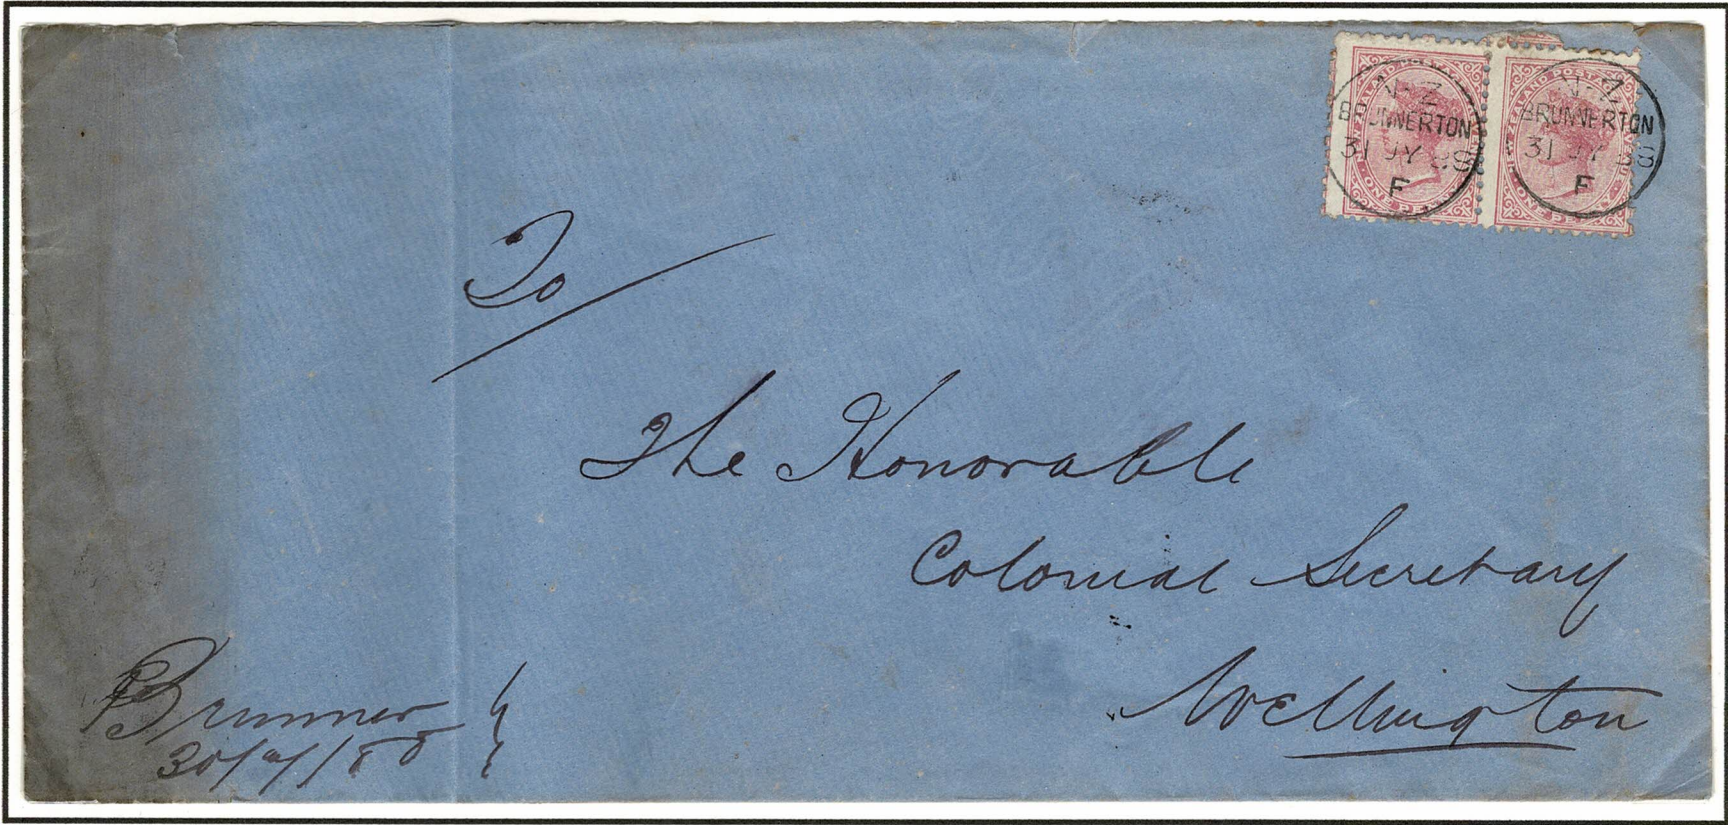 N-Z
BRUNNERTON
31 JY 88
F
N-Z
BRUNNERTON
31 JY 88
F
To
The Honorable
Colonial Secretary
Wellington
Brunner